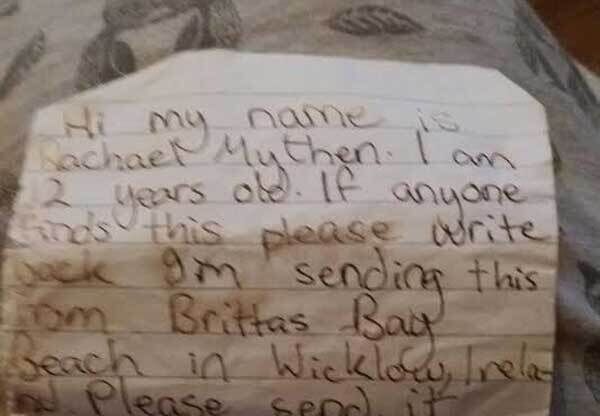 Hi my name is
Rachael Mythen. I am
12 years old. If anyone
finds this please write
back I'm sending this
from Brittas Bay
Beach in Wicklow, Irela-
nd. Please send it